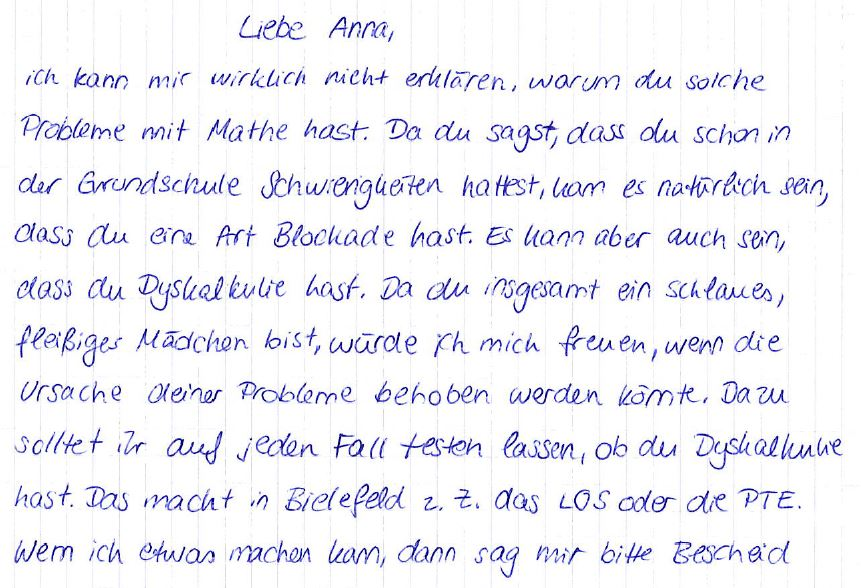 Liebe Anna,
ich kann mir wirklich nicht erklären, warum du solche
Probleme mit Mathe hast. Da du sagst, dass du schon in
der Grundschule Schwierigkeiten hattest, kann es natürlich sein,
dass du eine Art Blockade hast. Es kann aber auch sein,
dass du Dyskalkulie hast. Da du insgesamt ein schlaues,
fleißiges Mädchen bist, würde ich mich freuen, wenn die
Ursache deiner Probleme behoben werden könnte. Dazu
solltet ihr auf jeden Fall testen lassen, ob du Dyskalkulie
hast. Das macht in Bielefeld z. Z. das LOS oder die PTE.
Wenn ich etwas machen kann, dann sag mir bitte Bescheid